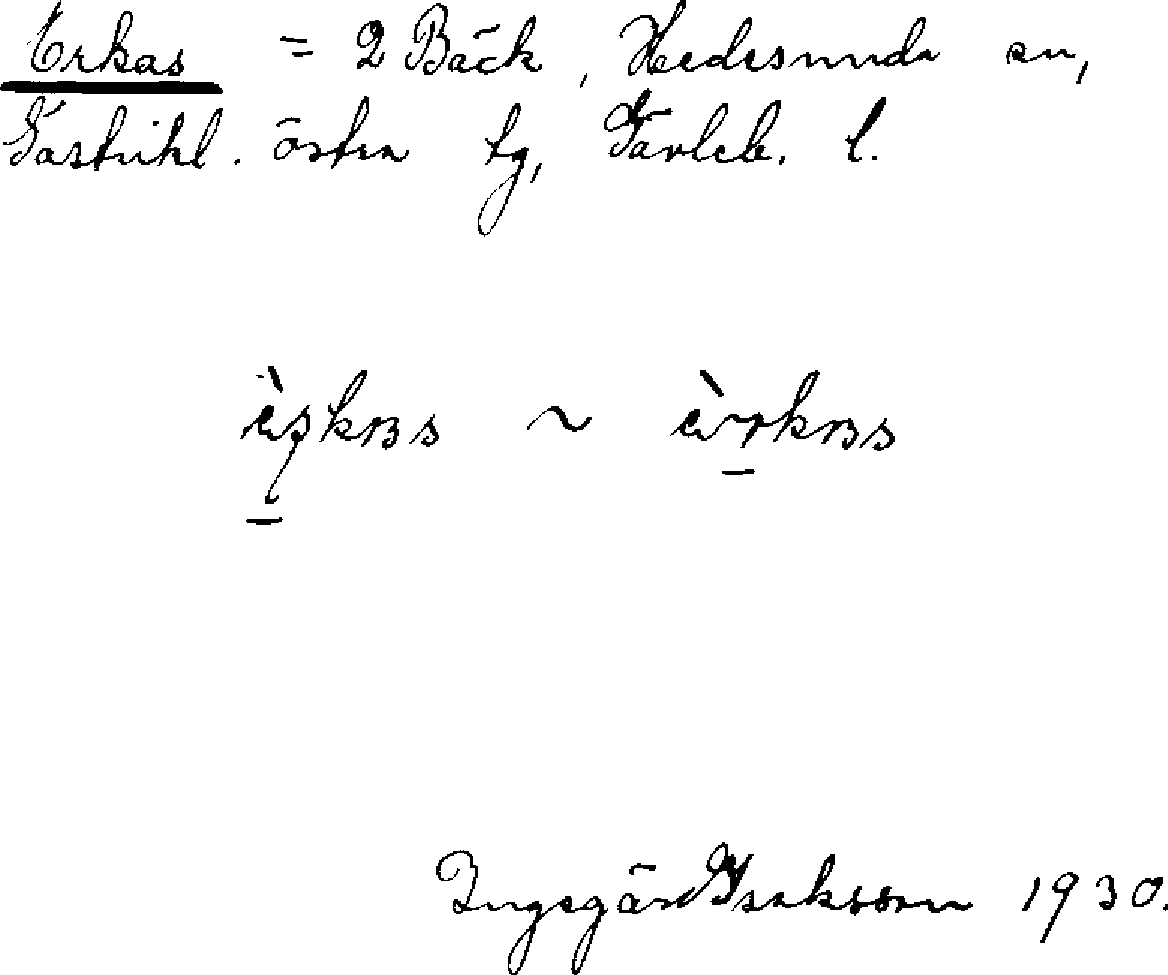 Erkas = 2 Bäck, Hedesunda sn,
Gästrikl. östra tg, Gävleb. l.
Ingegärd Isaksson 1930.